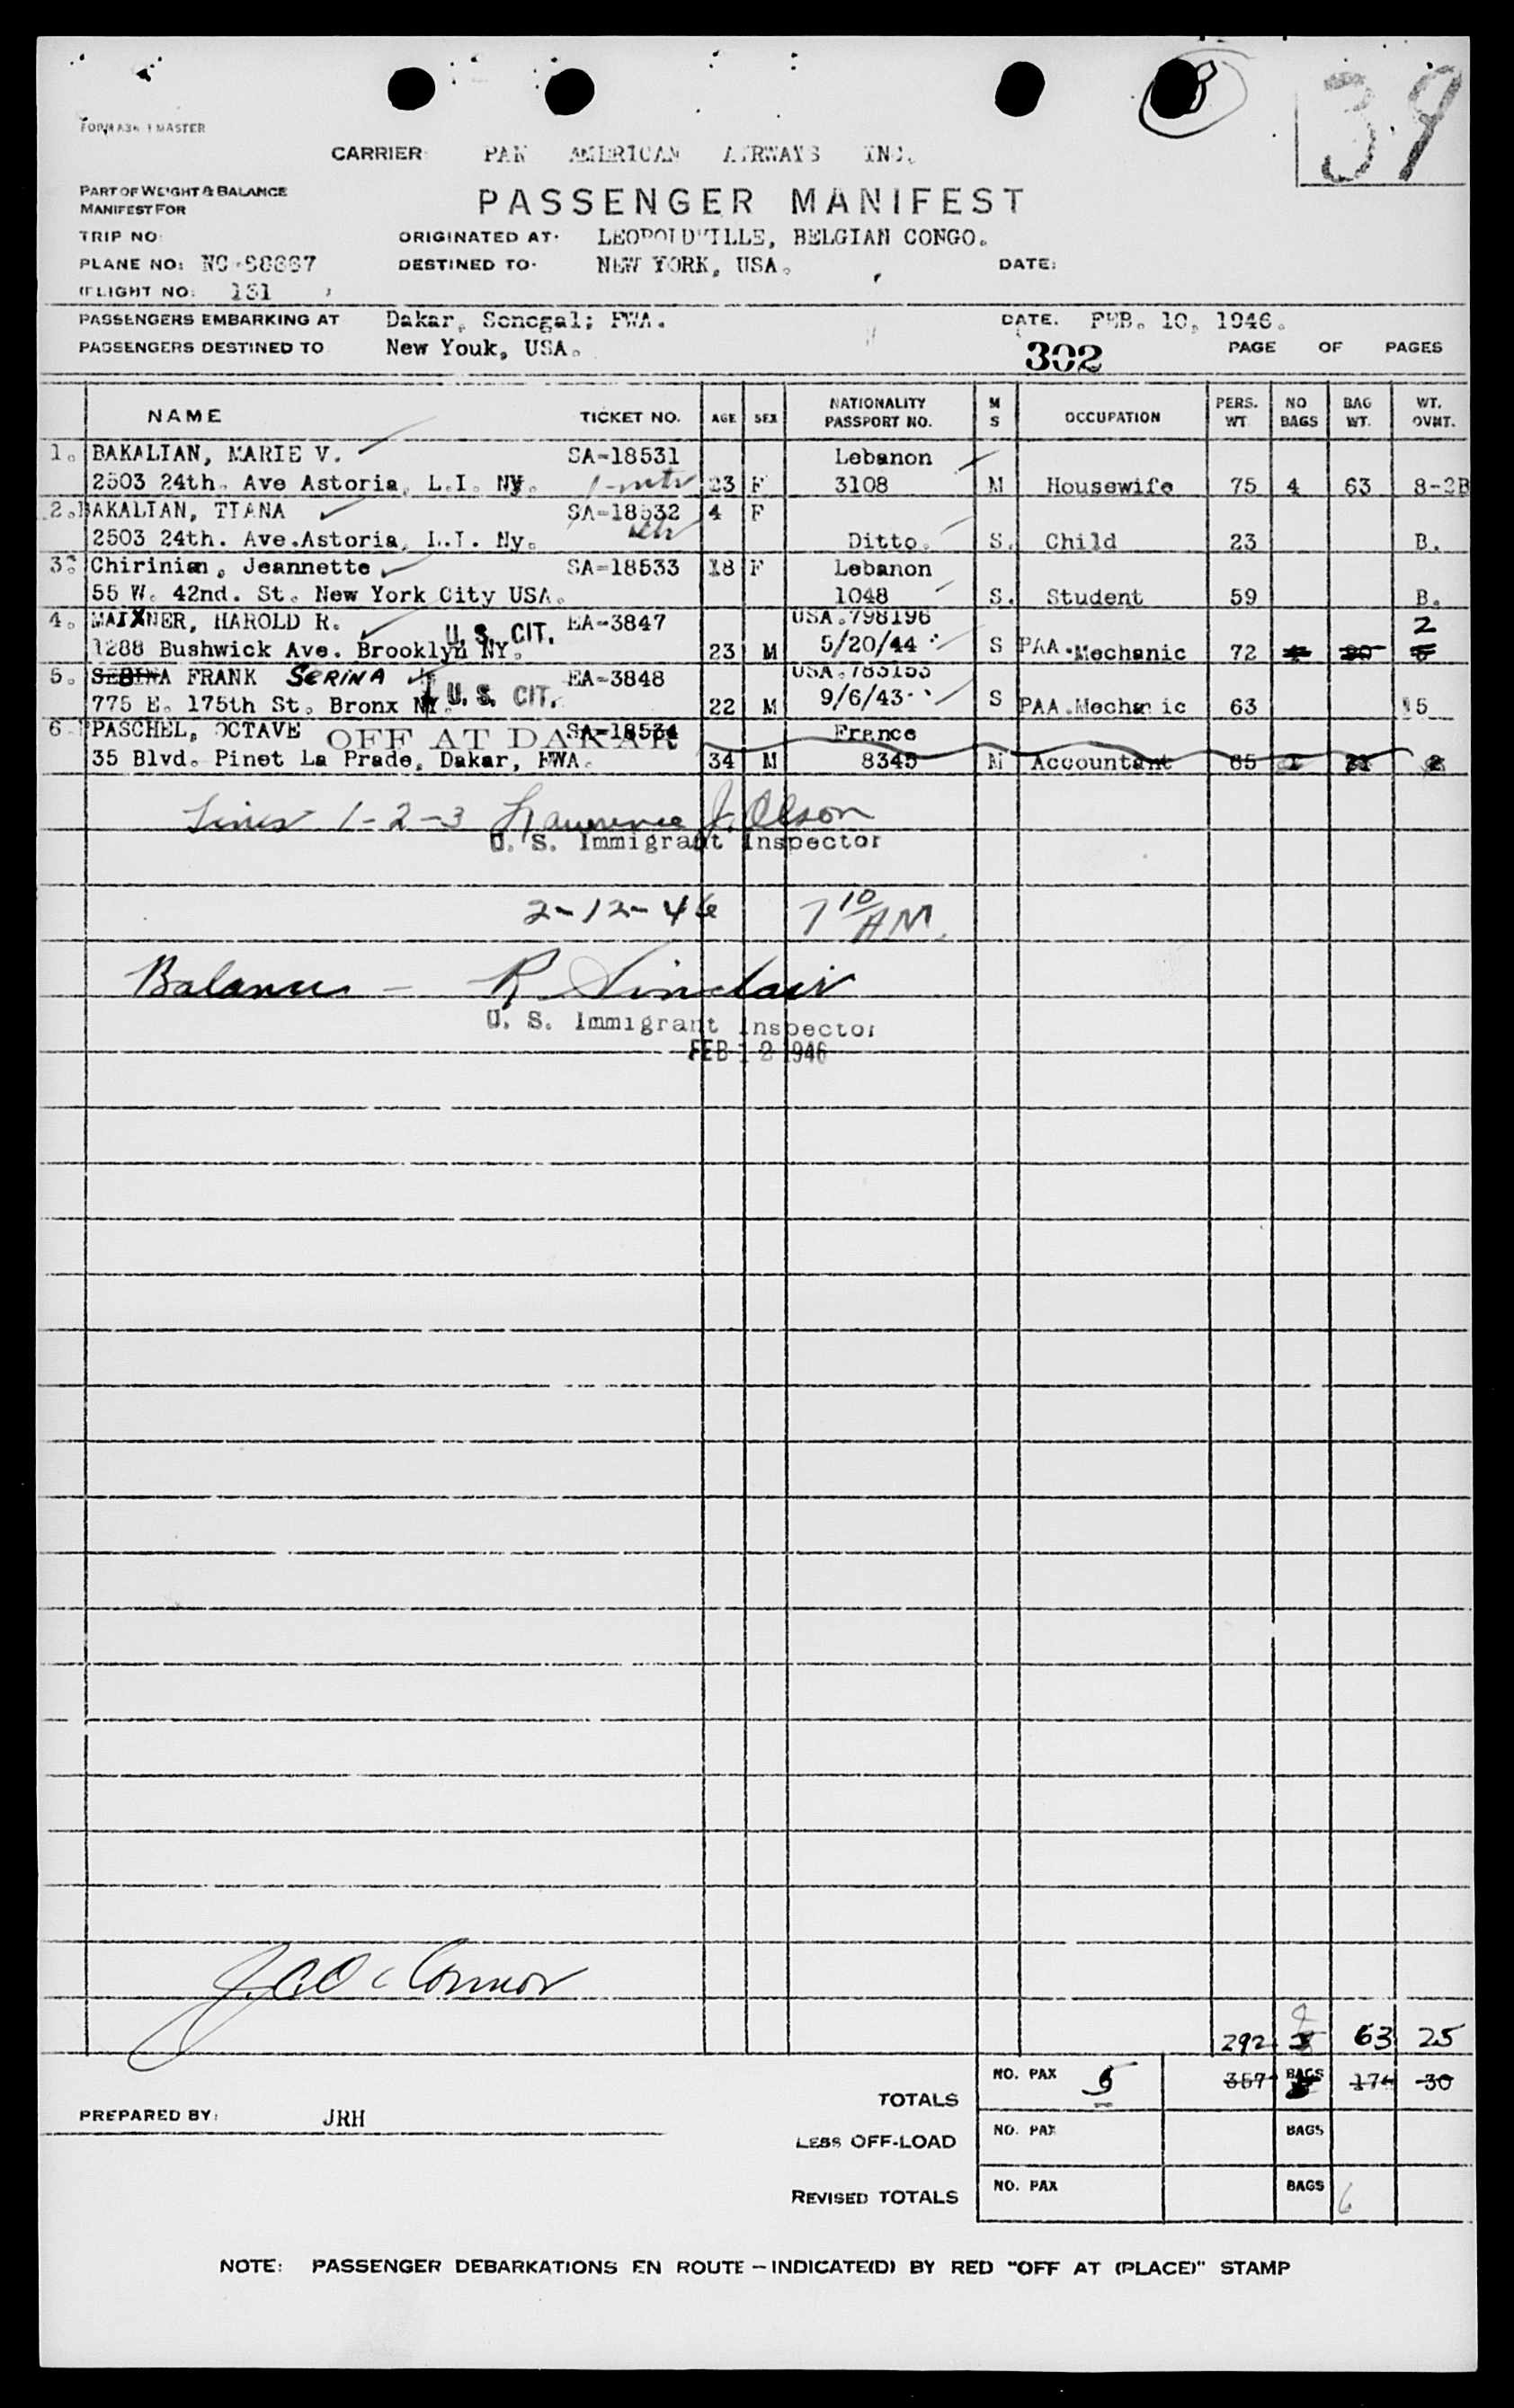 39
FORM A36-1 MASTER
CARRIER: PAN AMERICAN AIRWAYS INC.
PART OF WEIGHT & BALANCE
MANIFEST FOR
PASSENGER MANIFEST
TRIP NO: ORIGINATED AT: LEOPOLDVILLE, BELGIAN CONGO.
PLANE NO: DESTINED TO: NEW YORK, USA. DATE:
FLIGHT NO: 131
PASSENGERS EMBARKING AT Dakar, Senegal; FWA. DATE. FEB. 10, 1946.
PASSENGERS DESTINED TO New Youk, USA. 302 PAGE OF PAGES
NAME TICKET NO. AGE SEX NATIONALITY PASSPORT NO. M S OCCUPATION PERS. WT. NO BAGS BAG WT. WT. OVHT.
1. BAKALIAN, MARIE V. SA-18531 Lebanon
2503 24th. Ave Astoria, L.I. NY. 23 F 3108 M Housewife 75 4 63 8-2B
2. BAKALIAN, TIANA SA-18532 4 F
2503 24th. Ave.Astoria, L.I. Ny. Ditto. S. Child 23 B.
3. Chirinian, Jeannette SA-18533 18 F Lebanon
55 W. 42nd. St. New York City USA. 1048 S. Student 59 B.
4. MAIXNER, HAROLD R. U.S. CIT. EA-3847 USA.798196 2
1288 Bushwick Ave. Brooklyn NY. 23 M 5/20/44 S PAA.Mechanic 72
5. SEBINA FRANK SERINA EA-3848 USA.783153
775 E. 175th St. Bronx NY. U.S. CIT. 22 M 9/6/43 S PAA.Mechanic 63 15
6. PASCHEL, OCTAVE OFF AT DAKAR SA-18534 France
35 Blvd. Pinet La Prade, Dakar, FWA. 34 M 8345 M Accountant 65 1 31 2
Lines 1-2-3 Lawrence J. Olson
U. S. Immigrant Inspector
2-12-46 7 10 AM.
Balance - R. Sinclair
U. S. Immigrant Inspector
FEB 12 1946
292 63 25
TOTALS NO. PAX 5 357 BAGS 174 30
PREPARED BY: JRH
LESS OFF-LOAD NO. PAX BAGS
REVISED TOTALS NO. PAX BAGS 6
NOTE: PASSENGER DEBARKATIONS EN ROUTE - INDICATE(D) BY RED "OFF AT (PLACE)" STAMP